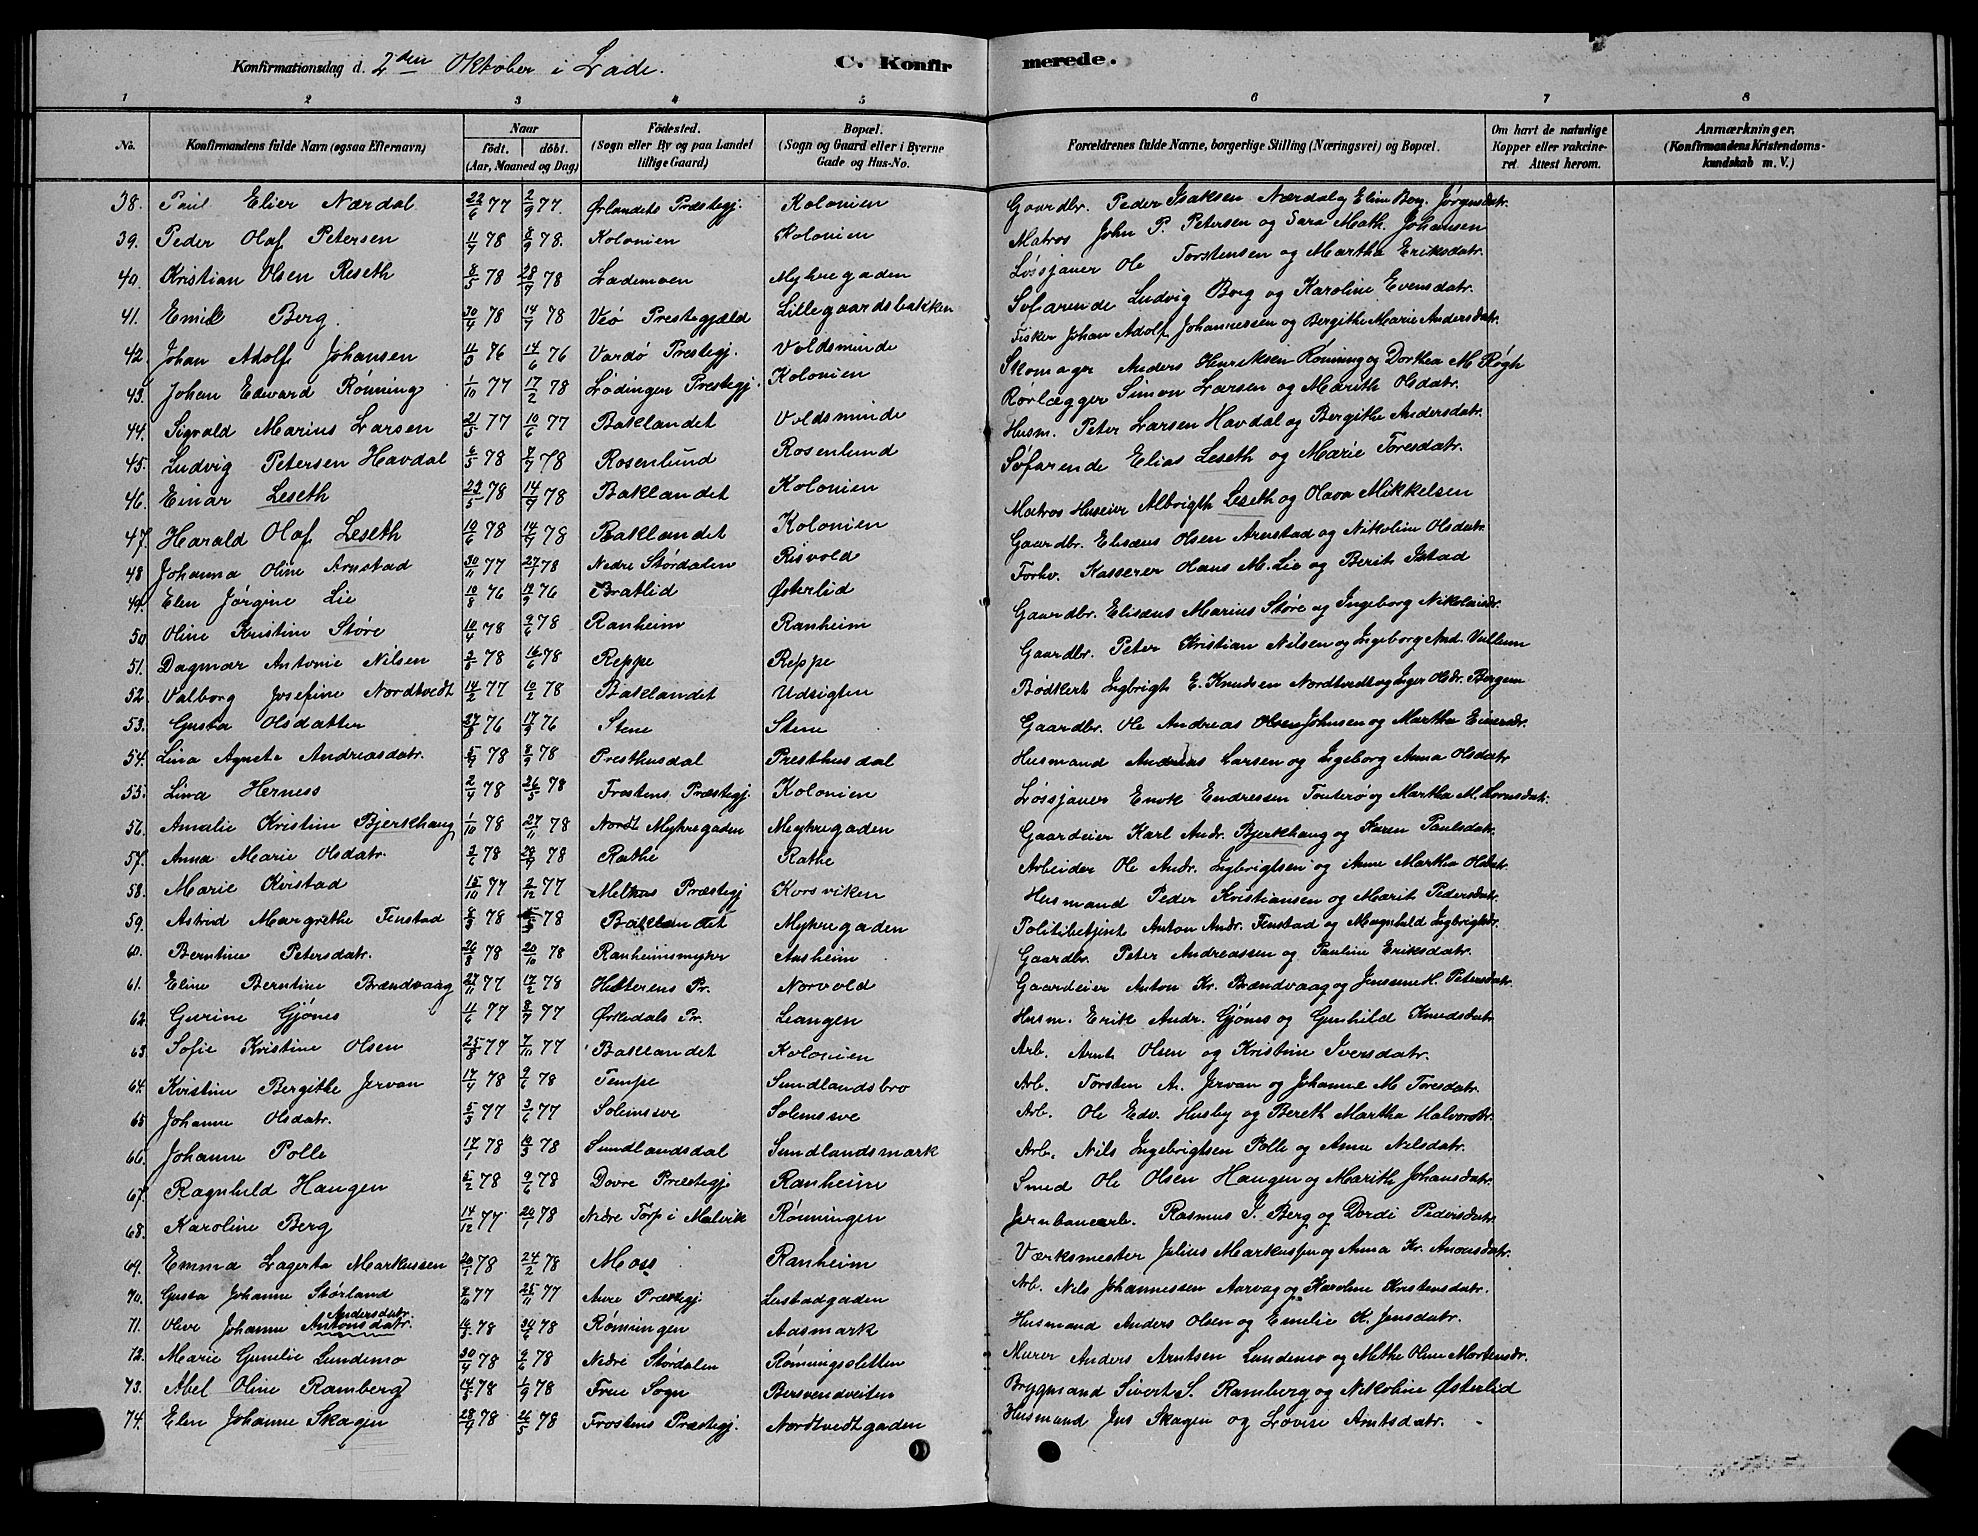 Konfirmationsdag d. 2den Oktober i Lade. C. Konfirmerede.
1 2 3 4 5 6 7 8
No. Konfirmandens fulde Navn (ogsaa Efternavn) Naar födt. döbt. (Aar, Maaned og Dag) Födested. (Sogn eller By og paa Landet tillige Gaard) Bopæl. (Sogn og Gaard eller i Byerne Gade og Hus-No. Forældrenes fulde Navne, borgerlige Stilling (Næringsvei) og Bopæl. Om havt de naturlige Kopper eller vakcineret. Attest herom. Anmærkninger. (Konfirmandens Kristendomskundskab m. V.)
38. Paul Elier Nærdal 22/6 77 2/9 77. Ørlandets Præstegj. Kolonien Gaardbr. Peder Isaksen Nærdal og Eline Berg. Jørgensdatr.
39. Peder Olaf Petersen 11/7 78 8/9 78. Kolonien Kolonien Matros John P. Petersen og Sara Math. Johansen
40. Kristian Olsen Reseth 8/5 78 28/7 78 Lademoen Myhregaden Løssjauer Ole Torstensen og Martha Eriksdatr.
41. Emil Berg. 30/4 78 14/7 78 Veö Prestegjæld Lillegaardsbakken Søfarende Ludvig Berg og Karoline Evensdatr.
42. Johan Adolf Johansen 11/3 76 14/6 76 Vardö Prestegj. Voldsminde Fisker Johan Adolf Johannessen og Bergithe Marie Andersdatr.
43. Johan Edward Rönning 1/10 77 17/2 78 Lödingen Prestegj. Kolonien Skomager Anders Henriksen Rönning og Dorthea M. Røgh
44. Sigvald Marius Larsen 21/5 77 10/6 77 Baklandet Voldsminde Rörlægger Simon Larsen og Marith Olsdatr.
45. Ludvig Petersen Havdal 6/5 78 7/7 78 Rosenlund Rosenlund Husm. Peter Larsen Havdal og Bergithe Andersdatr.
46. Einar Leseth 29/5 78 14/9 78 Baklandet Kolonien Søfarende Elias Leseth og Marie Toresdatr.
47. Harald Olaf Leseth 10/6 78 14/9 78 Baklandet Kolonien Matros Huseier Albrigth Leseth og Olava Mikkelsen
48 Johanna Oline Arnstad 30/11 77 27/1 78 Nedre Størdalen Risvold Gaardbr. Elisæus Olsen Arnstad og Nikoline Olsdatr.
49. Elen Jørgine Lie 10/8 76 17/9 76 Bratlid Østerlid Forhv. Kasserer Hans M. Lie og Berit Istad
50 Oline Kristine Støre 10/4 78 9/6 78 Ranheim Ranheim Gaardbr. Elisæus Marius Støre og Ingeborg Nikolaisdr.
51. Dagmar Antonie Nilsen 78 16/6 78 Reppe Reppe Gaardbr. Peter Kristian Nilsen og Ingeborg And. Vullum
52. Valborg Josefine Nordtvedt 14/2 77 10/2 78 Baklandet Udsigten Bödkert Ingbrigt E. Knudsen Nordtvedt og Inger Olsdr. Bergem
53. Gusta Olsdatter 76 17/9 76 Stene Stene Gaardbr. Ole Andreas Olsen Johnsen og Martha Einersdr.
54. Lina Agnete Andreasdatr. 78 8/9 78 Presthusdal Presthusdal Husmand Andreas Larsen og Ingeborg Anna Olsdatr
55. Lina Herness 2/4 78 26/5 78 Frostens Præstegj Kolonien Løssjauer Enok Endressen Touterö og Martha M. Lornsdatr.
56. Amalie Kristine Bjerkhaug 1/10 78 27/11 78 Nordt Myhregaden Myhregaden Gaardeier Karl Andr. Bjerkhaug og Karen Paulsdatr.
57. Anna Marie Olsdatr. 78 78 Rathe Rathe Arbeider Ole Andr. Ingbrigtsen og Anne Martha Olsdatr.
58. Marie Kvistad 15/10 77 2/12 77 Melhus Præstegj Korsviken Husmand Peder Kristiansen og Marit Pedersdatr.
59. Astrid Margrethe Finstad 8/3 78 78 Baklandet Myhregaden Politibetjent Anton Andr. Finstad og Magnhild Ingbrigtsdr.
60. Berntine Petersdatr. 26/8 78 20/10 78 Ranheimsmyhr Ausheim Gaardbr. Peter Andreassen og Pauline Eriksdatr.
61. Eline Berntine Brændvaag 27/11 77 17/2 78 Hitterens Pr. Norvold Gaardeier Anton Kr. Brændvaag og Jensine H. Petersdatr.
62. Gurine Gjönes 11/6 77 8/7 77 Ørkedals Pr. Leangen Husm. Erik Andr. Gjönes og Gunhild Knudsdatr
63. Sofie Kristine Olsen 25/8 77 7/10 77 Baklandet Kolonien Arb. Arnt Olsen og Kristine Iversdatr.
64. Kristine Bergithe Jervan 17/4 78 9/6 78 Tempe Sundlandsbro Arb. Torsten A. Jervan og Johanne M Toresdatr.
65 Johanne Olsdatr. 5/3 77 3/6 77 Solemsve Solemsve Arb. Ole Edv. Husby og Bereth Martha Halvorsdtr.
66. Johanne Polle 17/1 78 10/3 78 Sundlandsdal Sundlandsmark Arb. Nils Ingebrigtsen Polle og Anne Nilsdatr.
67. Ragnhild Haugen 5/2 78 9/6 78 Dovre Præstegj Ranheim Smed Ole Olsen Haugen og Marith Johansdatr.
68. Karoline Berg 14/12 77 20/1 78 Nedre Torp i Malvik Rönningen Jernbanearb. Rasmus I. Berg og Dordi Pedersdatr.
69. Emma Lagerta Markussen 20/1 78 24/2 78 Moss Ranheim Værksmester Julius Markussen og Anna Kr. Anonsdatr.
70. Gusta Johanne Størland 77 25/11 77 Aure Præstegj Leistadgaden Arb. Nils Johannessen Aarvag og Karoline Kristensdatr.
71. Olive Johanne Antonsdatr. Andersdatr. 78 78 Rönningen Aasmark Husmand Anders Olsen og Emelie K. Jensdatr.
72. Marie Gunelie Lundemo 30/4 78 9/6 78 Nedre Størdalen Rönningsletten Murer Anders Arntsen Lundemo og Methe Oline Mortensdr.
73. Abel Oline Ramberg 78 1/9 78 Frue Sogn Bersvendveiten Bryggmand Sivert S. Ramberg og Nikoline Østerlid
74. Elen Johanne Skagen 78 26/5 78 Frostens Præstegj. Nordtvedtgaden Husmand Jens Skagen og Lovise Arntsdatr.